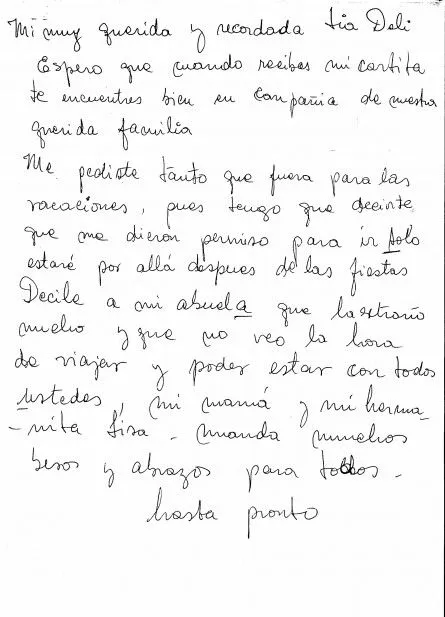 Mi muy querida y recordada tia Deli
Espero que cuando recibas mi cartita
te encuentres bien en compañia de nuestra
querida familia
Me pediste tanto que fuera para las
vacaciones, pues tengo que decirte
que me dieron permiso para ir solo
estaré por allá despues de las fiestas
Decile a mi abuela que la extraño
mucho y que no veo la hora
de viajar y poder estar con todos
ustedes, mi mamá y mi herma-
-nita manda muchos
besos y abrazos para todos -
hasta pronto